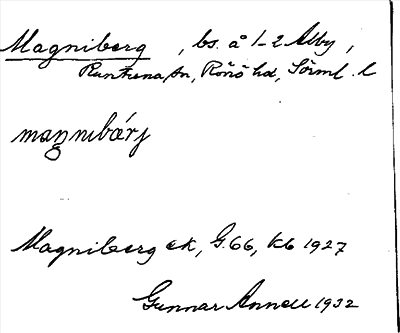 Magniberg, bs. å 1-2 Alby,
Runtuna sn, Rönö hd, Sörml. l
magnibärj
Magniberg ek, G.66, kb 1927
Gunnar Annell 1932